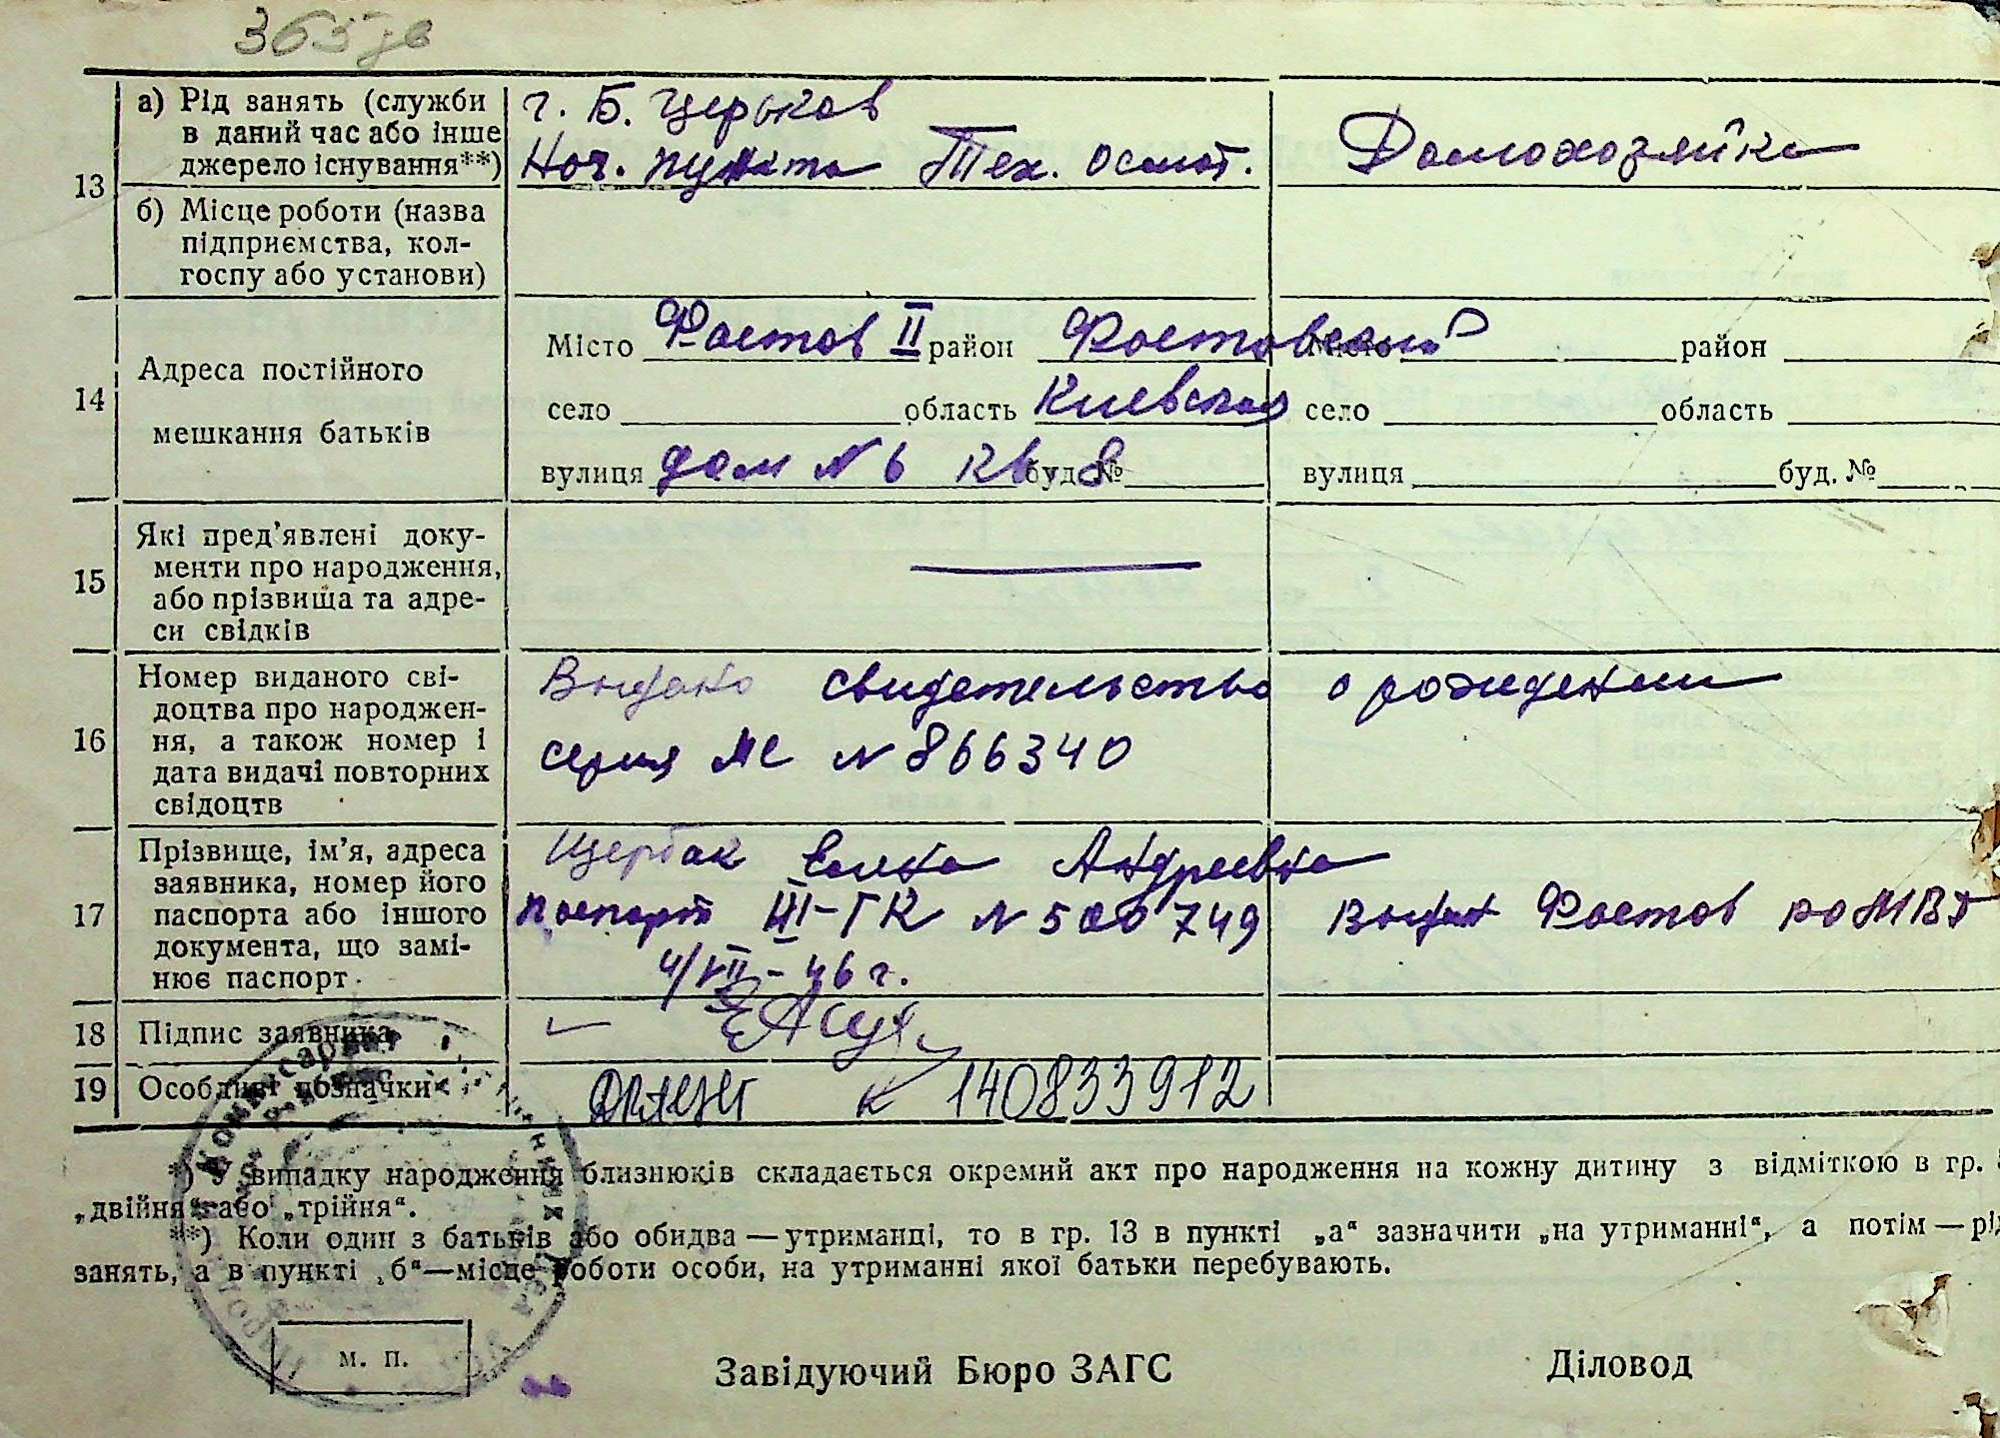 13
а) Рід занять (служби
в даний час або інше
джерело існування**)
г. Б. Церьков
Нач. пункта Тех. осмот.
Домохозяйка
б) Місце роботи (назва
підприємства, кол-
госпу або установи)
14
Адреса постійного
мешкання батьків
Місто Фастов II район Фастовский
село область Киевская
вулиця дом N 6 кв 8 буд. №
Місто район
село область
вулиця буд. №
15
Які пред'явлені доку-
менти про народження,
або прізвища та адре-
си свідків
16
Номер виданого сві-
доцтва про народжен-
ня, а також номер і
дата видачі повторних
свідоцтв
Выдано свидетельство о рождении
серия МС N 866340
17
Прізвище, ім'я, адреса
заявника, номер його
паспорта або іншого
документа, що замі-
нює паспорт
Щербак Елена Андреевна
паспорт III-ГК N 500749 Выдан Фастов ро МВД
4/VII-46 г.
18 Підпис заявника
19 Особливі позначки
к 140833912
*) У випадку народження близнюків складається окремий акт про народження на кожну дитину з відміткою в гр.
„двійня“ або „трійня“.
**) Коли один з батьків або обидва — утриманці, то в гр. 13 в пункті „а“ зазначити „на утриманні“, а потім — рід
занять, а в пункті „б“ — місце роботи особи, на утриманні якої батьки перебувають.
м. п.
Завідуючий Бюро ЗАГС
Діловод